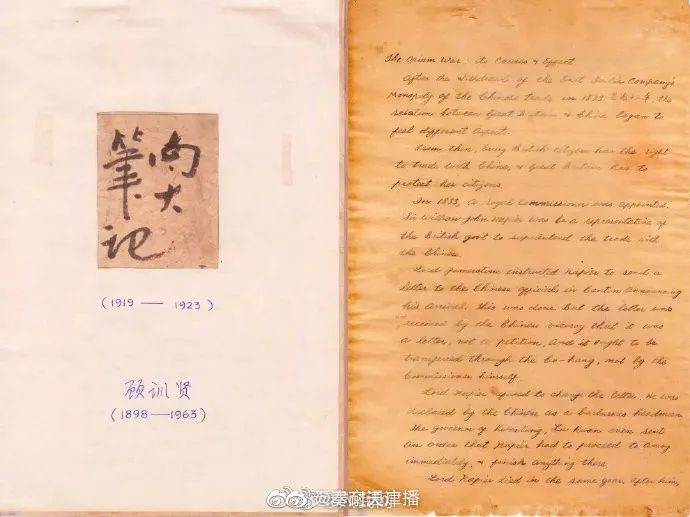 南大
筆記
(1919 — 1923)
顾训贤
(1898—1963)
The Opium War: its Causes & Effect
After the withdrawal of the East India Company's
Monopoly of the Chinese trade in 1833, the
relation between Great Britain & China began to
feel different aspect.
From then, every British citizen has the right
to trade with China, & Great Britain has to
protect her citizens.
In 1833, a royal Commissioner was appointed.
Sir William John Napier was be a representative of
the British gov't to superintend the trade with
the Chinese.
Lord Palmerston instructed Napier to send a
letter to the Chinese officials in Canton announcing
his arrival. This was done. But the letter was
received by the Chinese viceroy that it was
a letter, not a petition, and it ought to be
transferred through the Co-hang, not by the
Commissioner himself.
Lord Napier to change the letter. He was
declared by the Chinese as a barbarous headman
The governor of Kwantung, even sent
an order that Napier had to proceed to
immediately, & finish anything there.
Lord Napier died in the same year, after him,
秦耐读津播